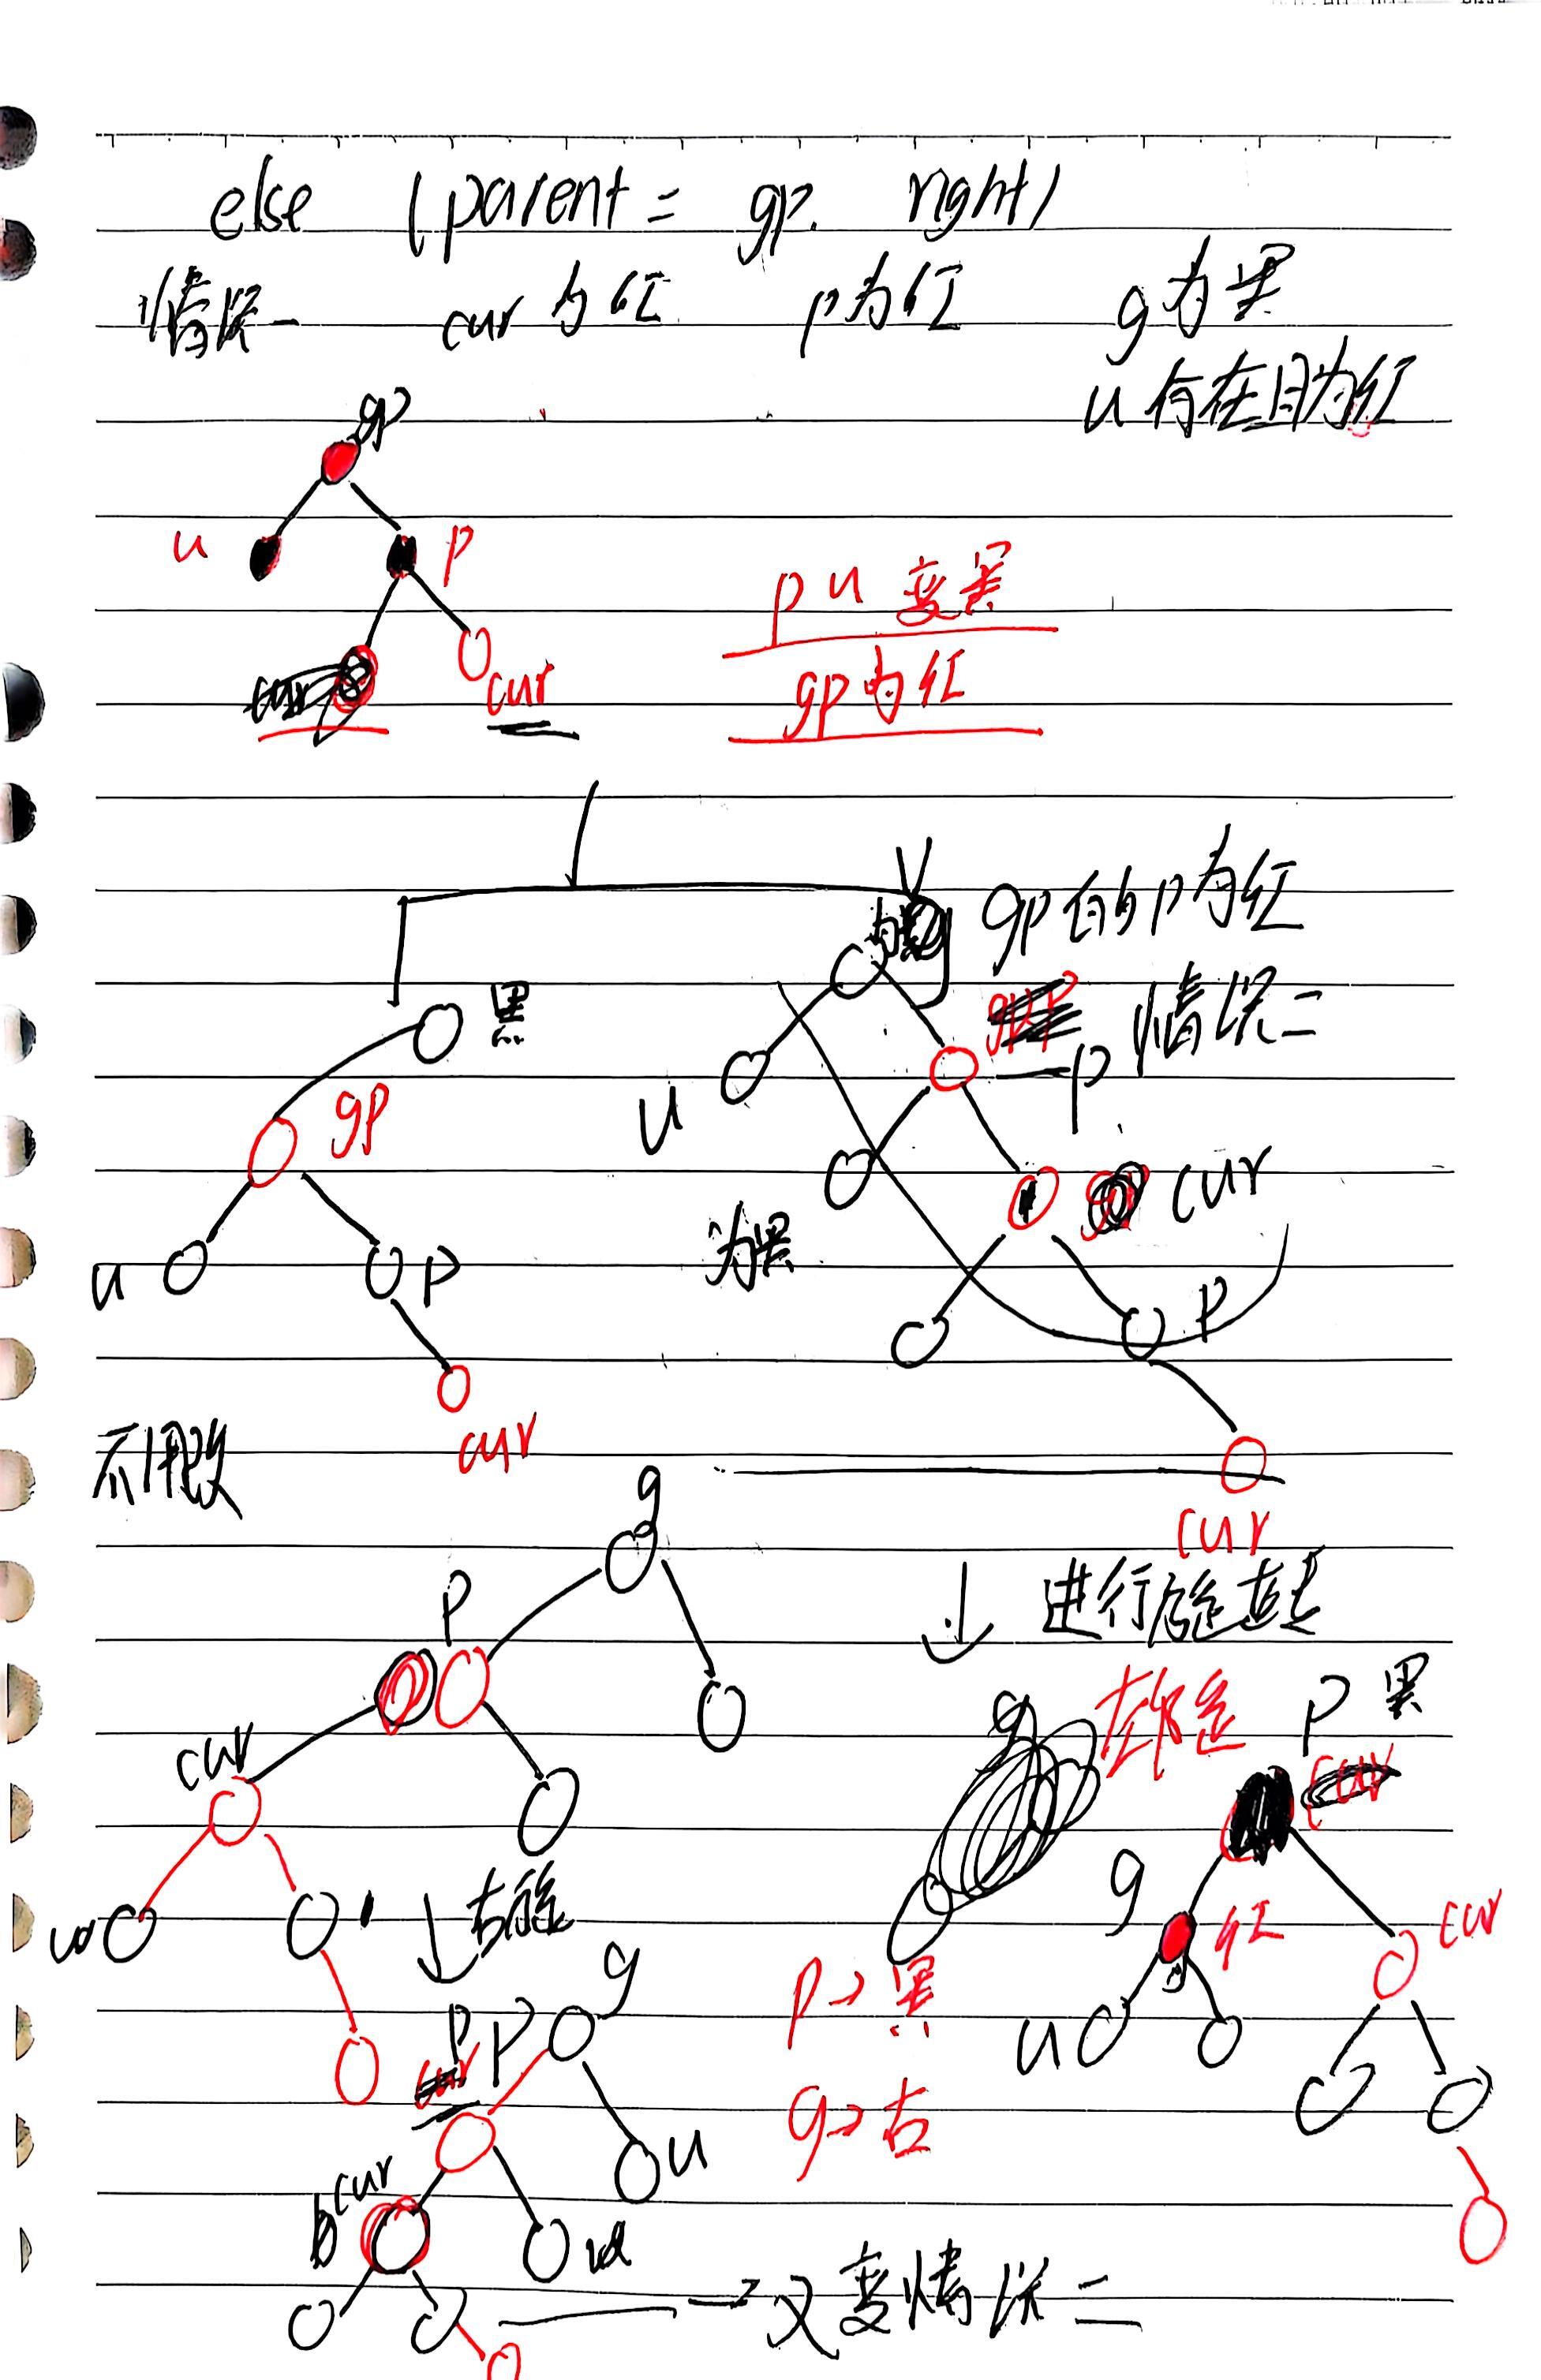 else (parent = gp. right)
情况一 cur为红 p为红 g为黑
u存在且为红
gp
u
p
p u 变黑
cur
cur
gp为红
gp的p为红
黑
情况二
p
gp
u
cur
为黑
u
p
p
cur
不用改
cur
g
进行旋转
p
左旋
p 黑
cur
cur
g
g
右旋
红
cur
g
p→黑
p
p
u
g→右
u
cur
b
→又变情况二